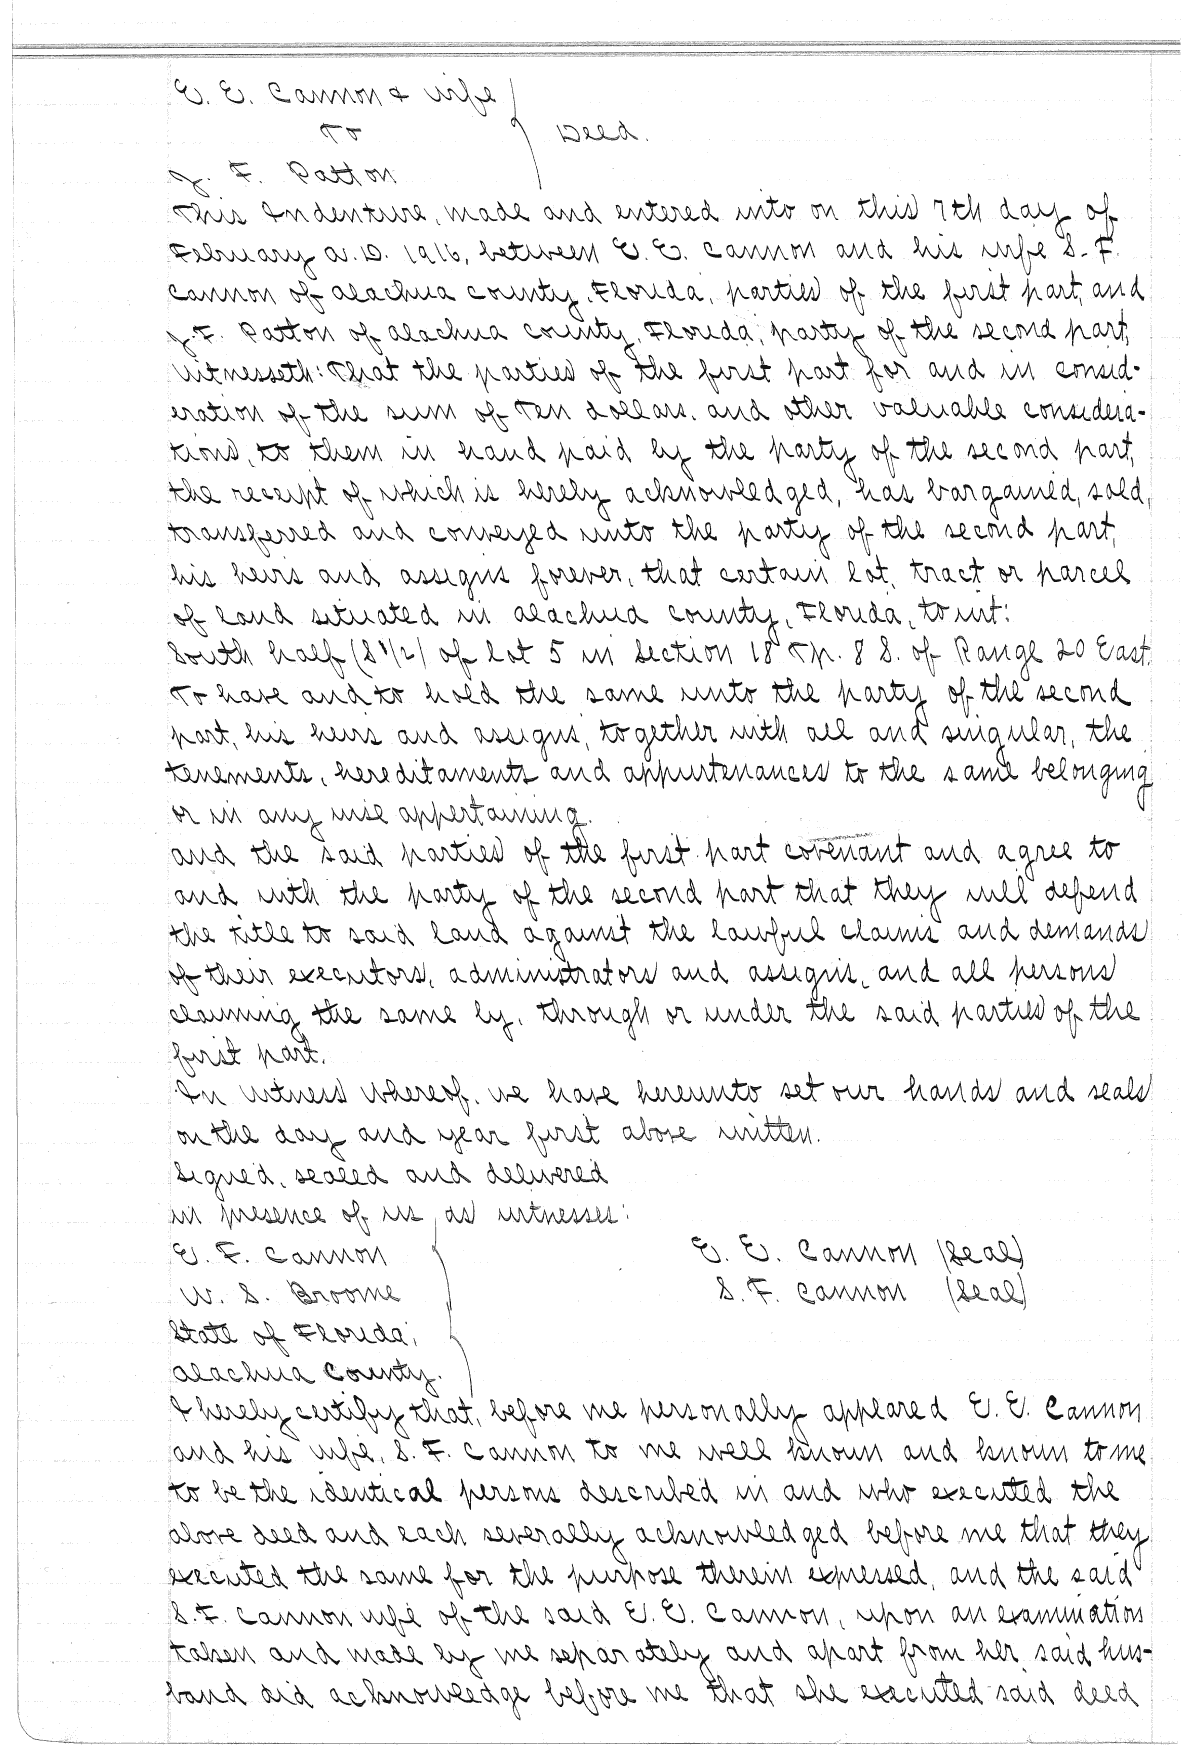 E. E. Cannon & wife
To
Deed.
J. F. Patton
This Indenture, made and entered into on this 7th day of
February A.D. 1916, between E. E. Cannon and his wife S. F.
Cannon of Alachua County, Florida, parties of the first part, and
J. F. Patton of Alachua County, Florida, party of the second part,
Witnesseth: That the parties of the first part for and in consid-
eration of the sum of Ten dollars, and other valuable considera-
tions, to them in hand paid by the party of the second part,
the receipt of which is hereby acknowledged, has bargained, sold,
transferred and conveyed unto the party of the second part,
his heirs and assigns forever, that certain lot, tract or parcel
of land situated in Alachua County, Florida, to wit:
South half (S 1/2) of Lot 5 in Section 18 Tp. 8 S. of Range 20 East.
To have and to hold the same unto the party of the second
part, his heirs and assigns, together with all and singular, the
tenements, hereditaments and appurtenances to the same belonging
or in any wise appertaining.
And the said parties of the first part covenant and agree to
and with the party of the second part that they will defend
the title to said land against the lawful claims and demands
of their executors, administrators and assigns, and all persons
claiming the same by, through or under the said parties of the
first part.
In witness whereof, we have hereunto set our hands and seals
on the day and year first above written.
Signed, sealed and delivered
in presence of us, as witnesses:
E. F. Cannon E. E. Cannon (Seal)
W. S. Broome S. F. Cannon (Seal)
State of Florida,
Alachua County.
I hereby certify that, before me personally appeared E. E. Cannon
and his wife, S. F. Cannon to me well known and known to me
to be the identical persons described in and who executed the
above deed and each severally acknowledged before me that they
executed the same for the purpose therein expressed, and the said
S. F. Cannon wife of the said E. E. Cannon, upon an examination
taken and made by me separately and apart from her said hus-
band did acknowledge before me that she executed said deed